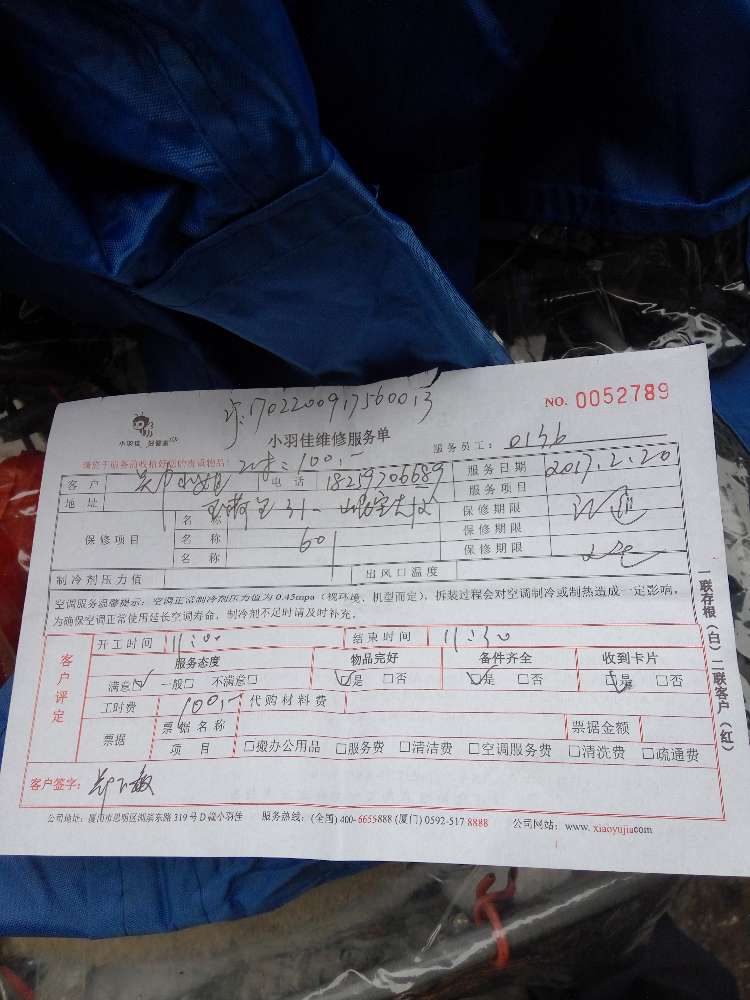 1702200917560013
NO. 0052789
小羽佳 好管家
小羽佳维修服务单
服务员工: 0136
请您于服务前收拾好您的贵重物品! 100.-
客户 电话 18259706689 服务日期 2017.2.20
地址 服务项目
保修项目 名称 保修期限
名称 601 保修期限
名称 保修期限
制冷剂压力值 出风口温度
空调服务温馨提示: 空调正常制冷剂压力值为 0.45mpa (视环境、机型而定), 拆装过程会对空调制冷或制热造成一定影响,
为确保空调正常使用延长空调寿命, 制冷剂不足时请及时补充。
客户评定
开工时间 11:00 结束时间 11:30
服务态度 物品完好 备件齐全 收到卡片
满意☑ 一般□ 不满意□ ☑是 □否 ☑是 □否 ☑是 □否
工时费 100.- 代购材料费
票据 票据名称 票据金额
项目 □搬办公用品 □服务费 □清洁费 □空调服务费 □清洗费 □疏通费
客户签字:
公司地址: 厦门市思明区湖滨东路 319 号 D 栋小羽佳 服务热线: (全国) 400-6655888 (厦门) 0592-517 8888 公司网站: www. xiaoyujia.com
一联存根(白) 二联客户(红)